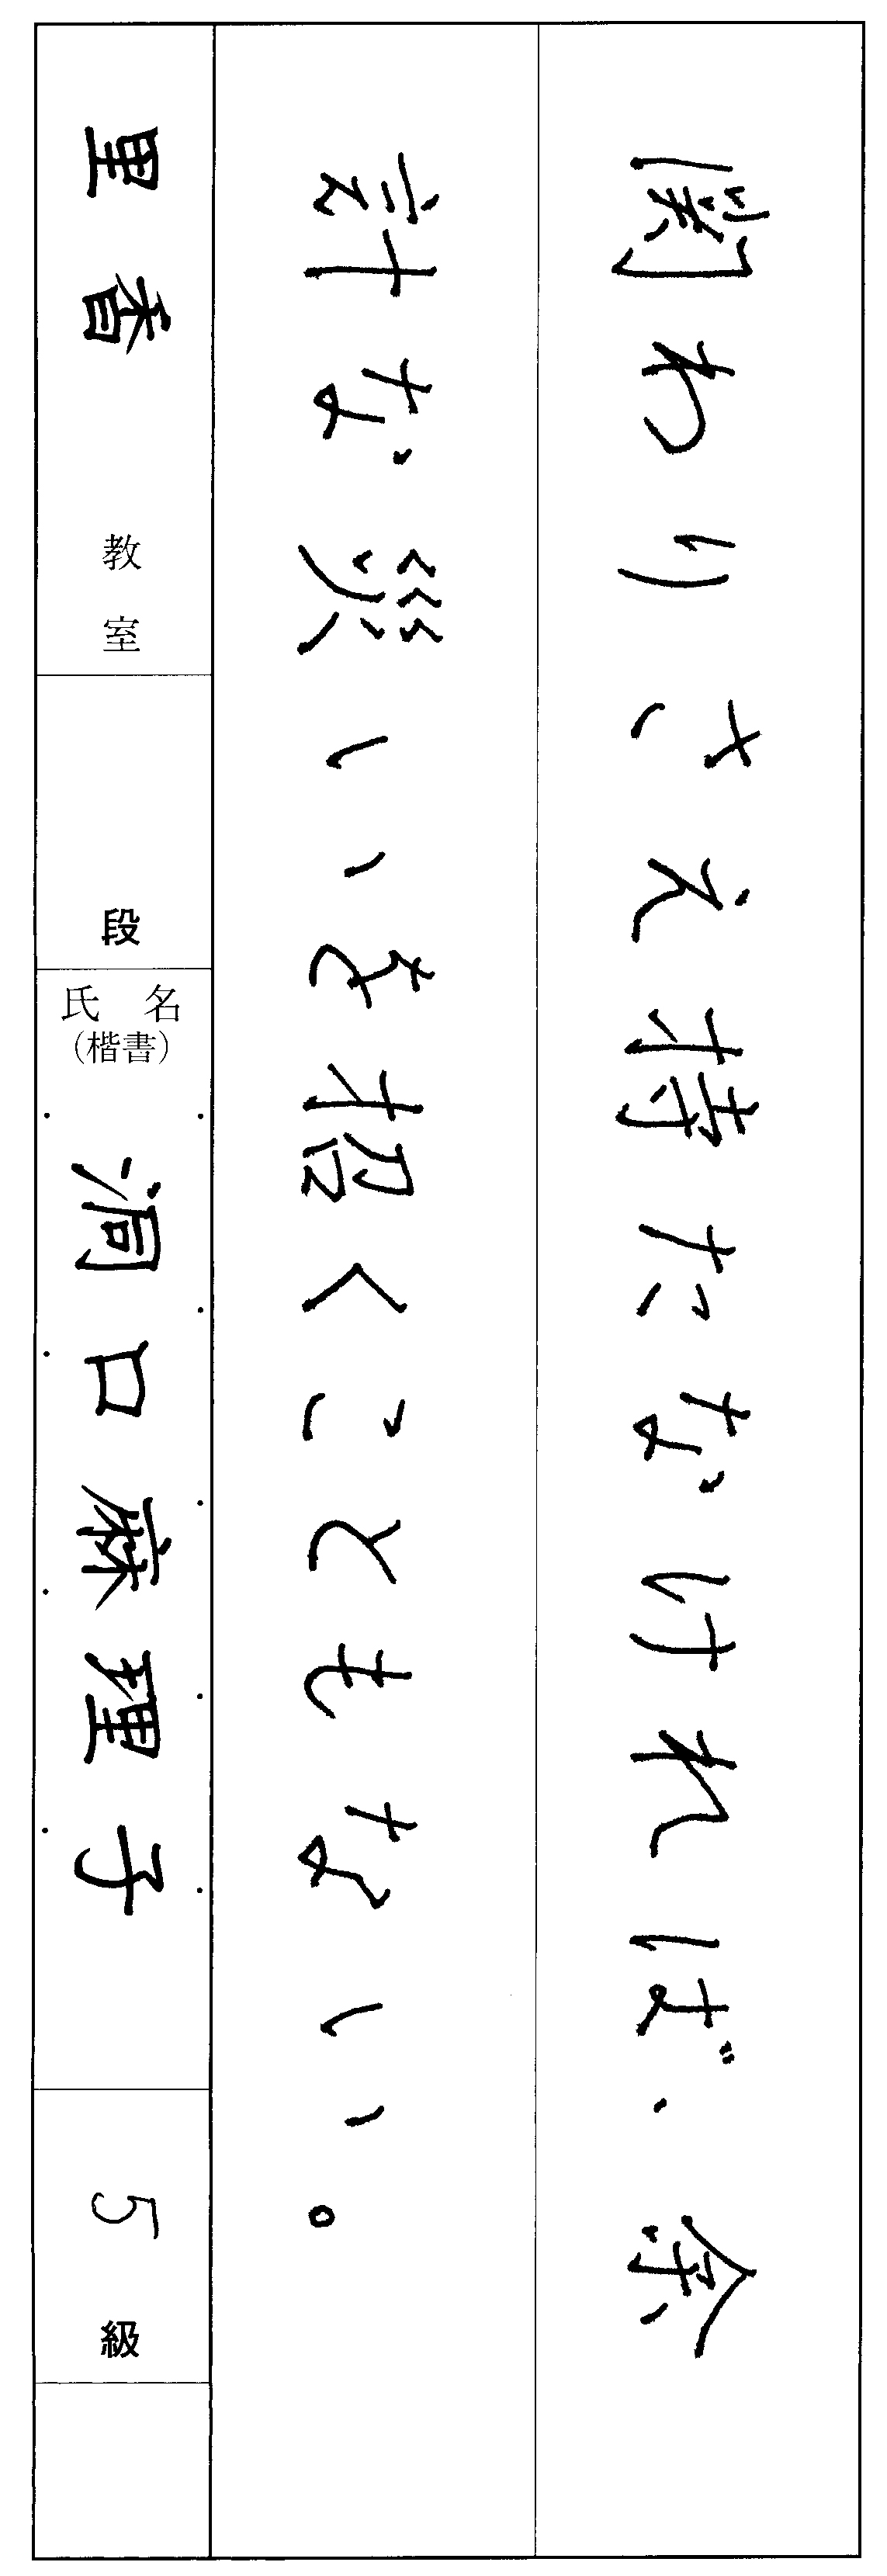 関わりさえ持たなければ、余
計な災いを招くこともない。
里香 教室
段
氏名
(楷書)
洞口麻理子
5級